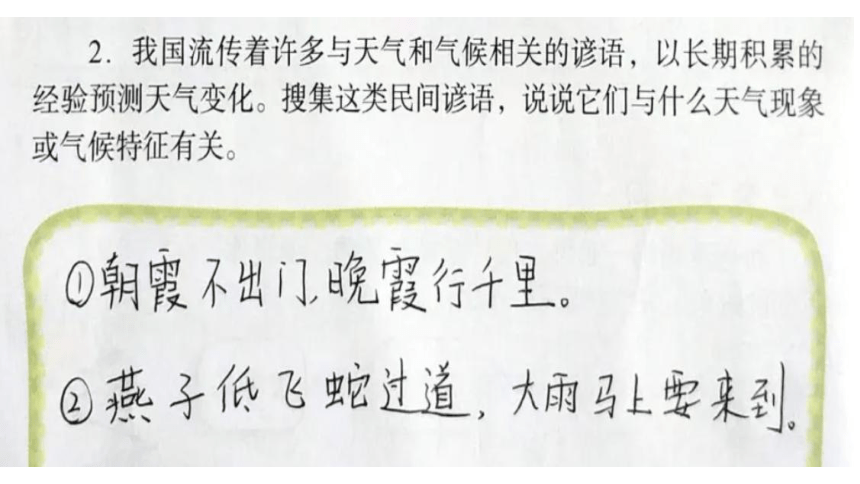 2. 我国流传着许多与天气和气候相关的谚语，以长期积累的
经验预测天气变化。搜集这类民间谚语，说说它们与什么天气现象
或气候特征有关。
①朝霞不出门,晚霞行千里。
②燕子低飞蛇过道，大雨马上要来到。